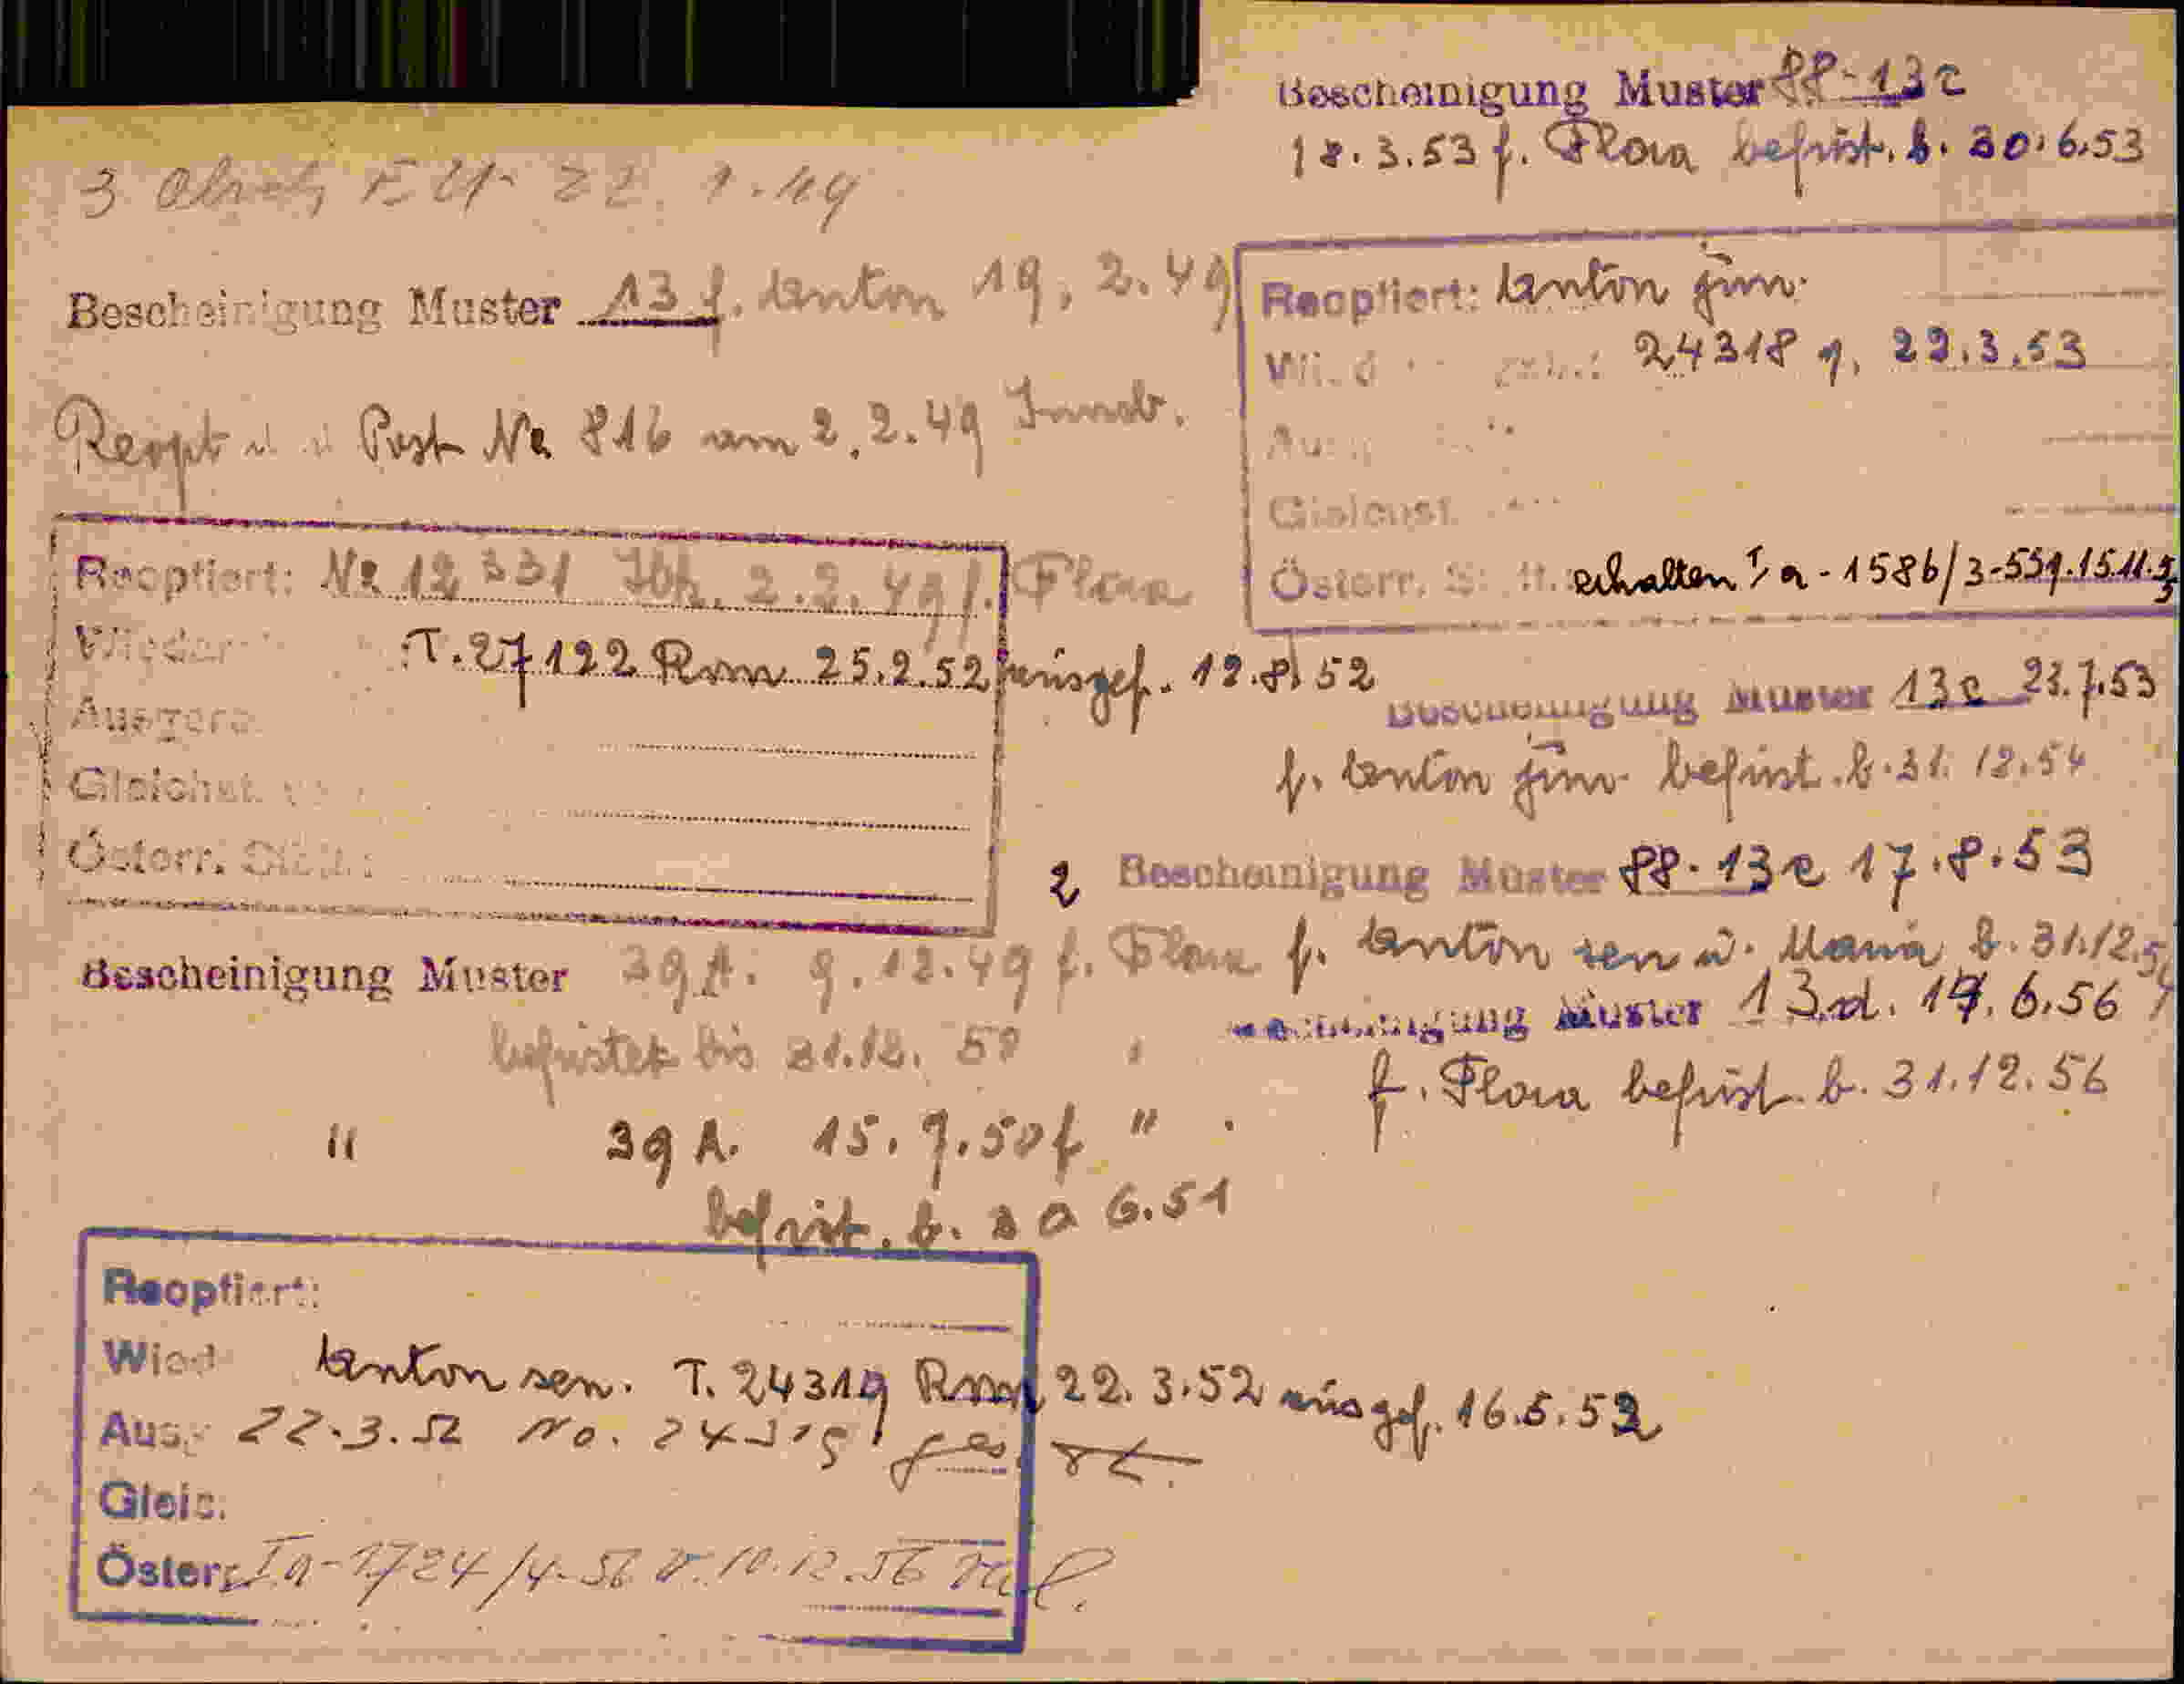 3 E 21- 22. 1.49
Bescheinigung Muster 13 f. Anton 19. 2.49
Reopt Post Nr. 816 am 2.2.49 Innsb.
Reoptiert: Nr 12 331 Ibk. 2.2.49 f. Flora
Wieder T. 27122 Rom 25.2.52 ausgef. 12.8.52
Ausgere
Gleichst.
Österr. Stb.:
Bescheinigung Muster 39 A. 9.12.49 f. Flora
befristet bis 31.12.50
" 39 A. 15.9.50 f "
befrist. b. 30 6.51
Reoptiert:
Wied Anton sen. T. 24319 Rom 22.3.52 ausgef. 16.5.52
Ausg 22.3.52 No. 24319
Gleic.
Österr Ia-1724/4-56 v. 10.12.56
Bescheinigung Muster 88-13c
18.3.53 f. Flora befrist. b. 30.6.53
Reoptiert: Anton jun.
24318 22.3.53
Ausg
Gleichst.
Österr. St. erhalten Ia-1586/3-53
Bescheinigung Muster 13c 23.7.53
f. Anton jun. befrist. b. 31.12.54
2 Bescheinigung Muster 88-13c 17.8.53
f. Anton sen u. Maria b. 31.12.54
Bescheinigung Muster 13d. 6.56
f. Flora befrist. b. 31.12.56